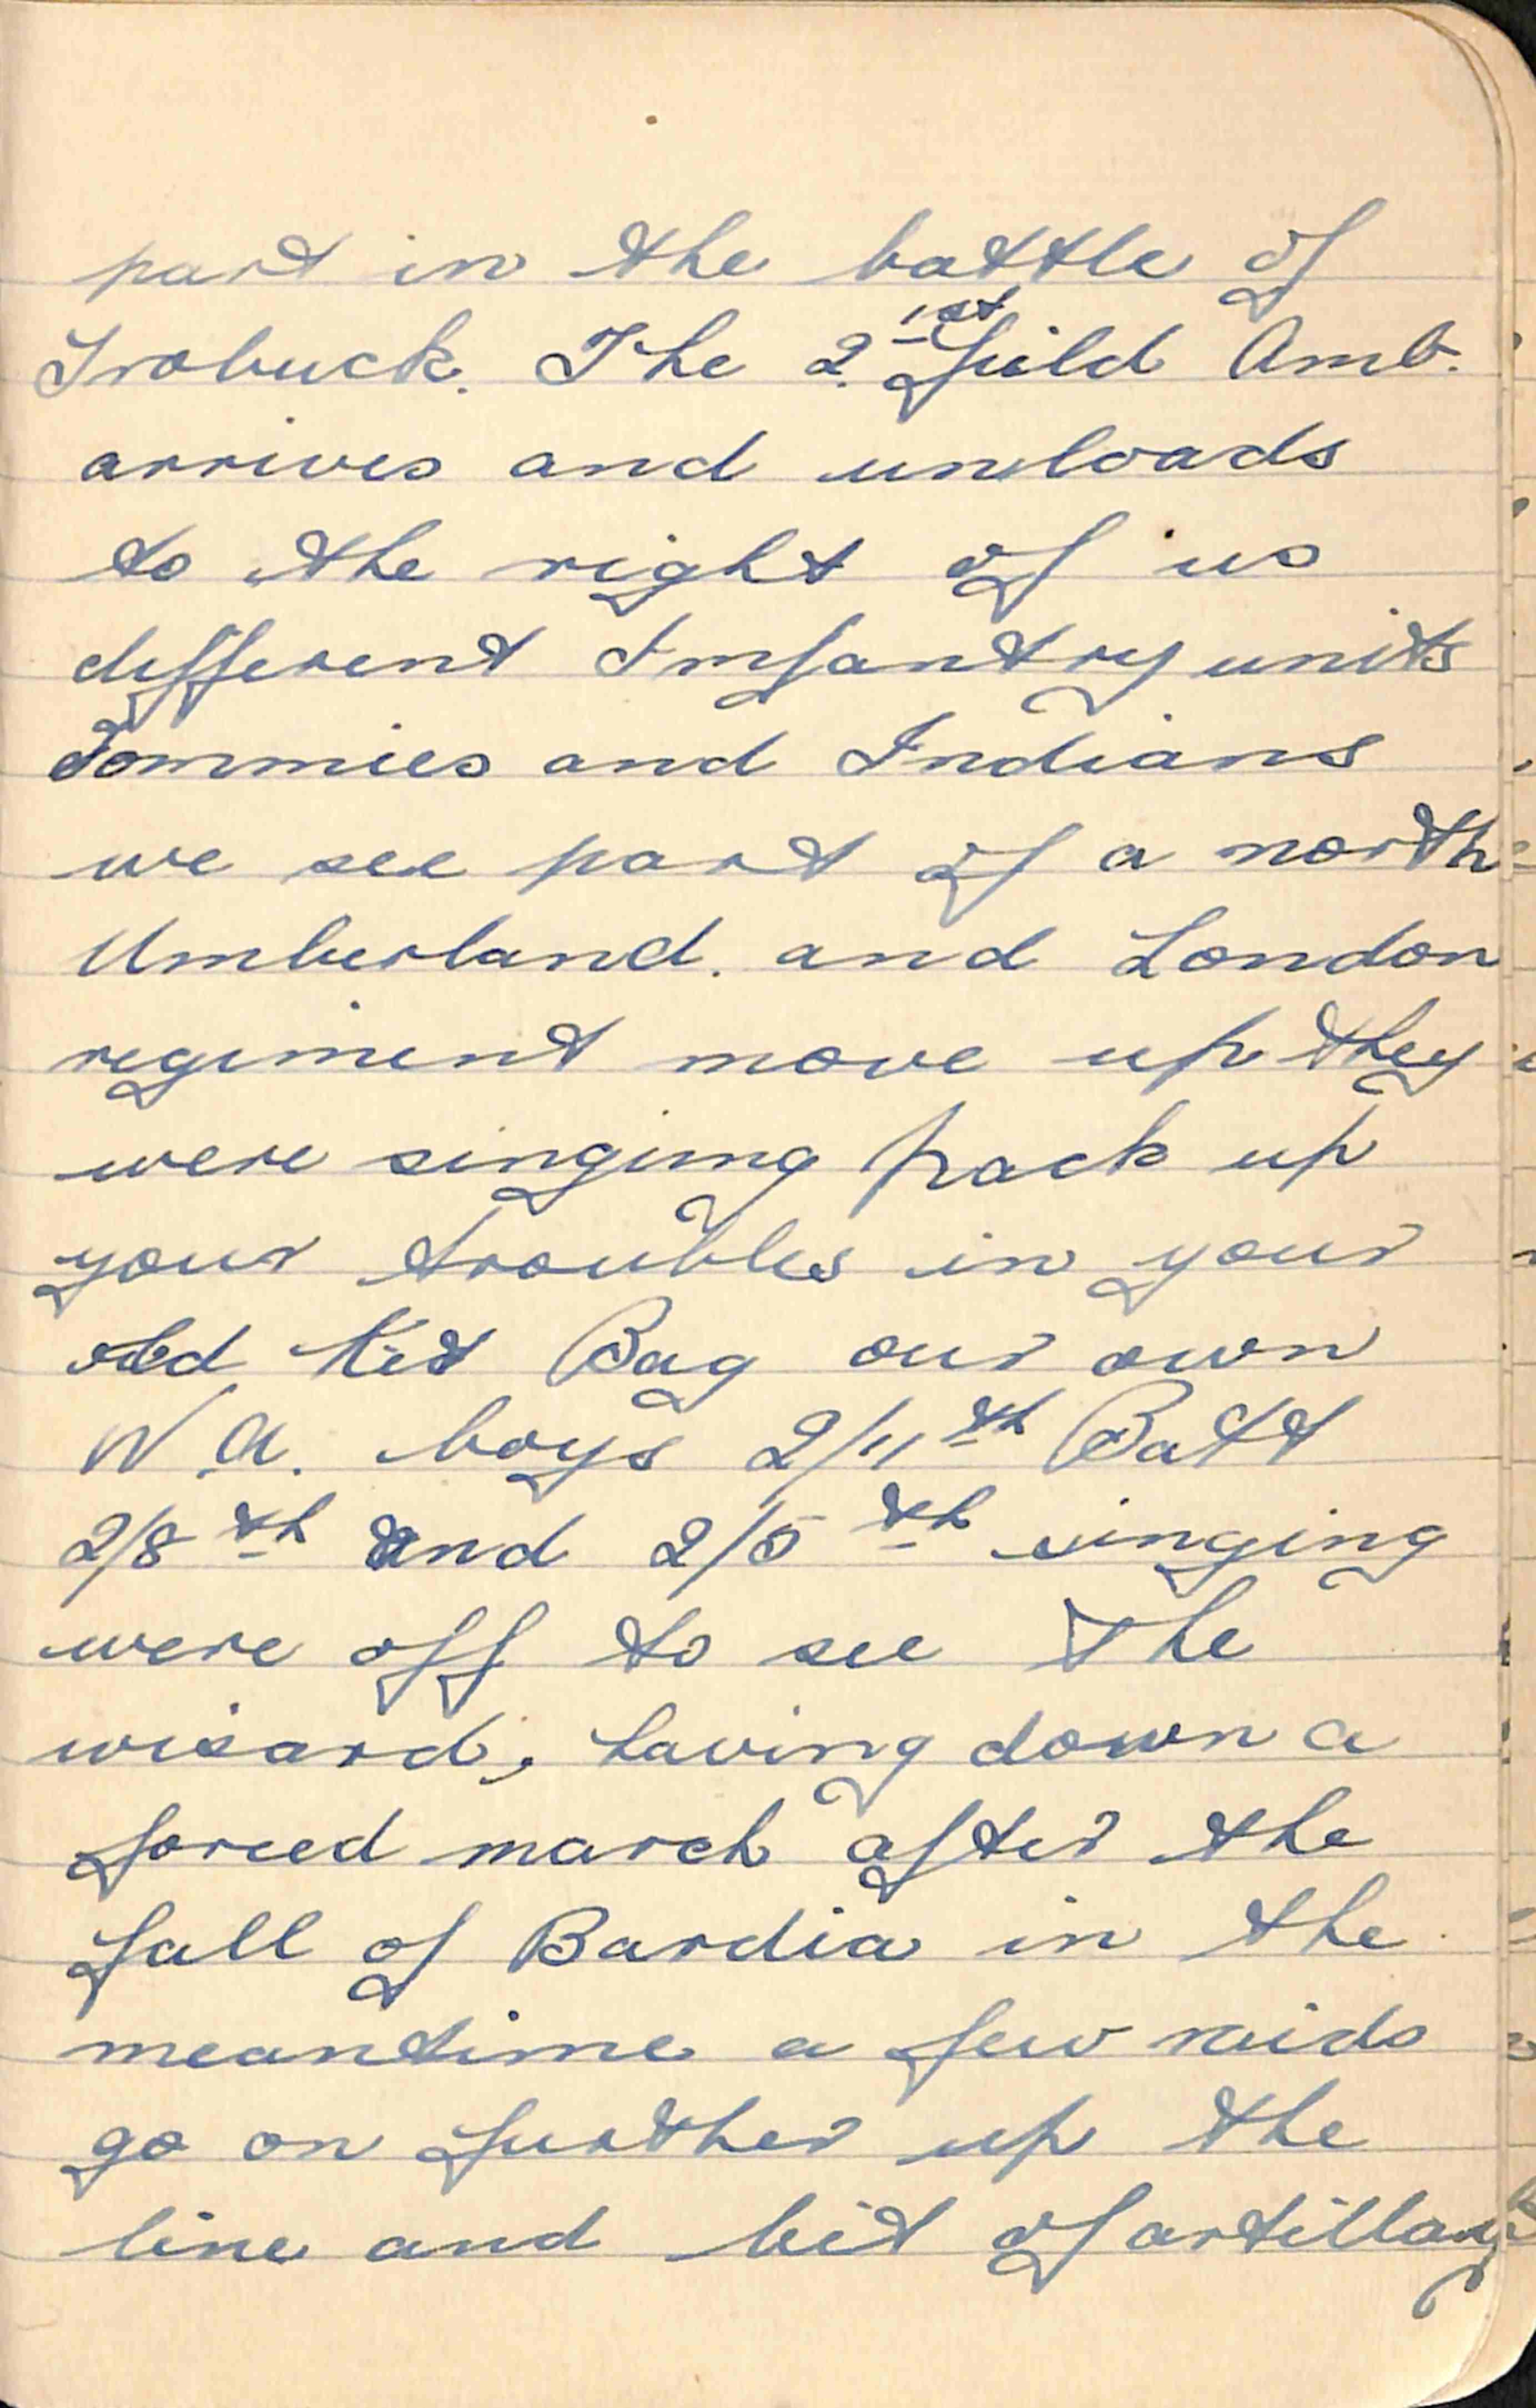 part in the battle of
Trobuck. The 2.1st Feild Amb.
arrives and unloads
to the right of us
different Imfantry units
Tommies and Indians
we see part of a north
Umberland. and London
regiment move up they
were singing pack up
your troubles in your
old Kit Bag our own
W.A. boys 2/11th Batt
2/8th and 2/5th singing
were off to see the
wisard, having down a
forced march after the
fall of Bardia in the
meantime a few raids
go on further up the
line and bit of artillary